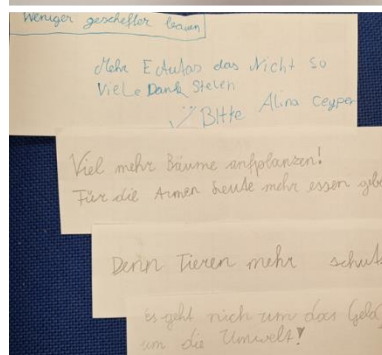 Weniger geschefter bauen
Mehr E Autos das Nicht so
Viele Dank Stelen
Bitte Alina Ceyper
Viel mehr Bäume anpflanzen!
Für die Armen Leute mehr essen gebe
Denn Tieren mehr schut
es geht nich um das Geld
um die Umwelt!